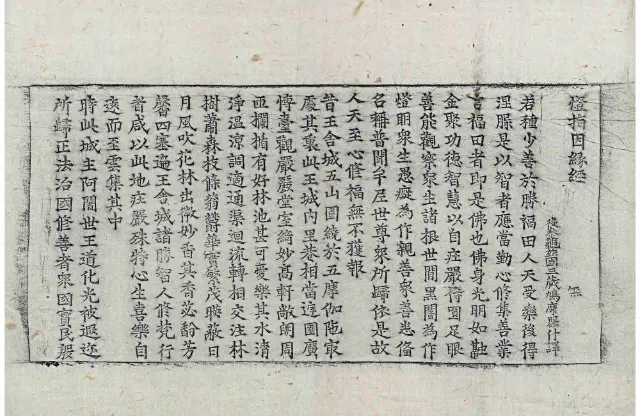 燈指因緣經
後秦龜玆國三藏鳩摩羅什譯
若種少善於勝福田人天受樂後得
涅槃是以智者應當勤心修集善業
言福田者即是佛也佛身光明如融
金聚功德智慧以自莊嚴得圓足眼
善能觀察衆生諸根世間黑闇為作
燈明衆生愚癡為作親善衆善悉俻
名稱普聞牟尼世尊衆所歸依是故
人天至心修福無不獲報
昔王舍城五山圍繞於五摩伽陁冣
處其裏此王城內里巷相當庭園廣
博臺觀嚴麗堂室綺妙高軒敞朗周
迊欄楯有好林池甚可愛樂其水清
淨温涼調適通渠迴流轉相交注林
樹蕭森枝條蓊欝華實繁茂映蔽日
月風吹花林出微妙香其香苾馚芳
馨四塞遍王舍城諸勝智人修梵行
者咸以此地莊嚴殊特心生喜樂自
遠而至雲集其中
時此城主阿闍世王道化光被遐迩
所歸正法治國修善者衆國實民殷